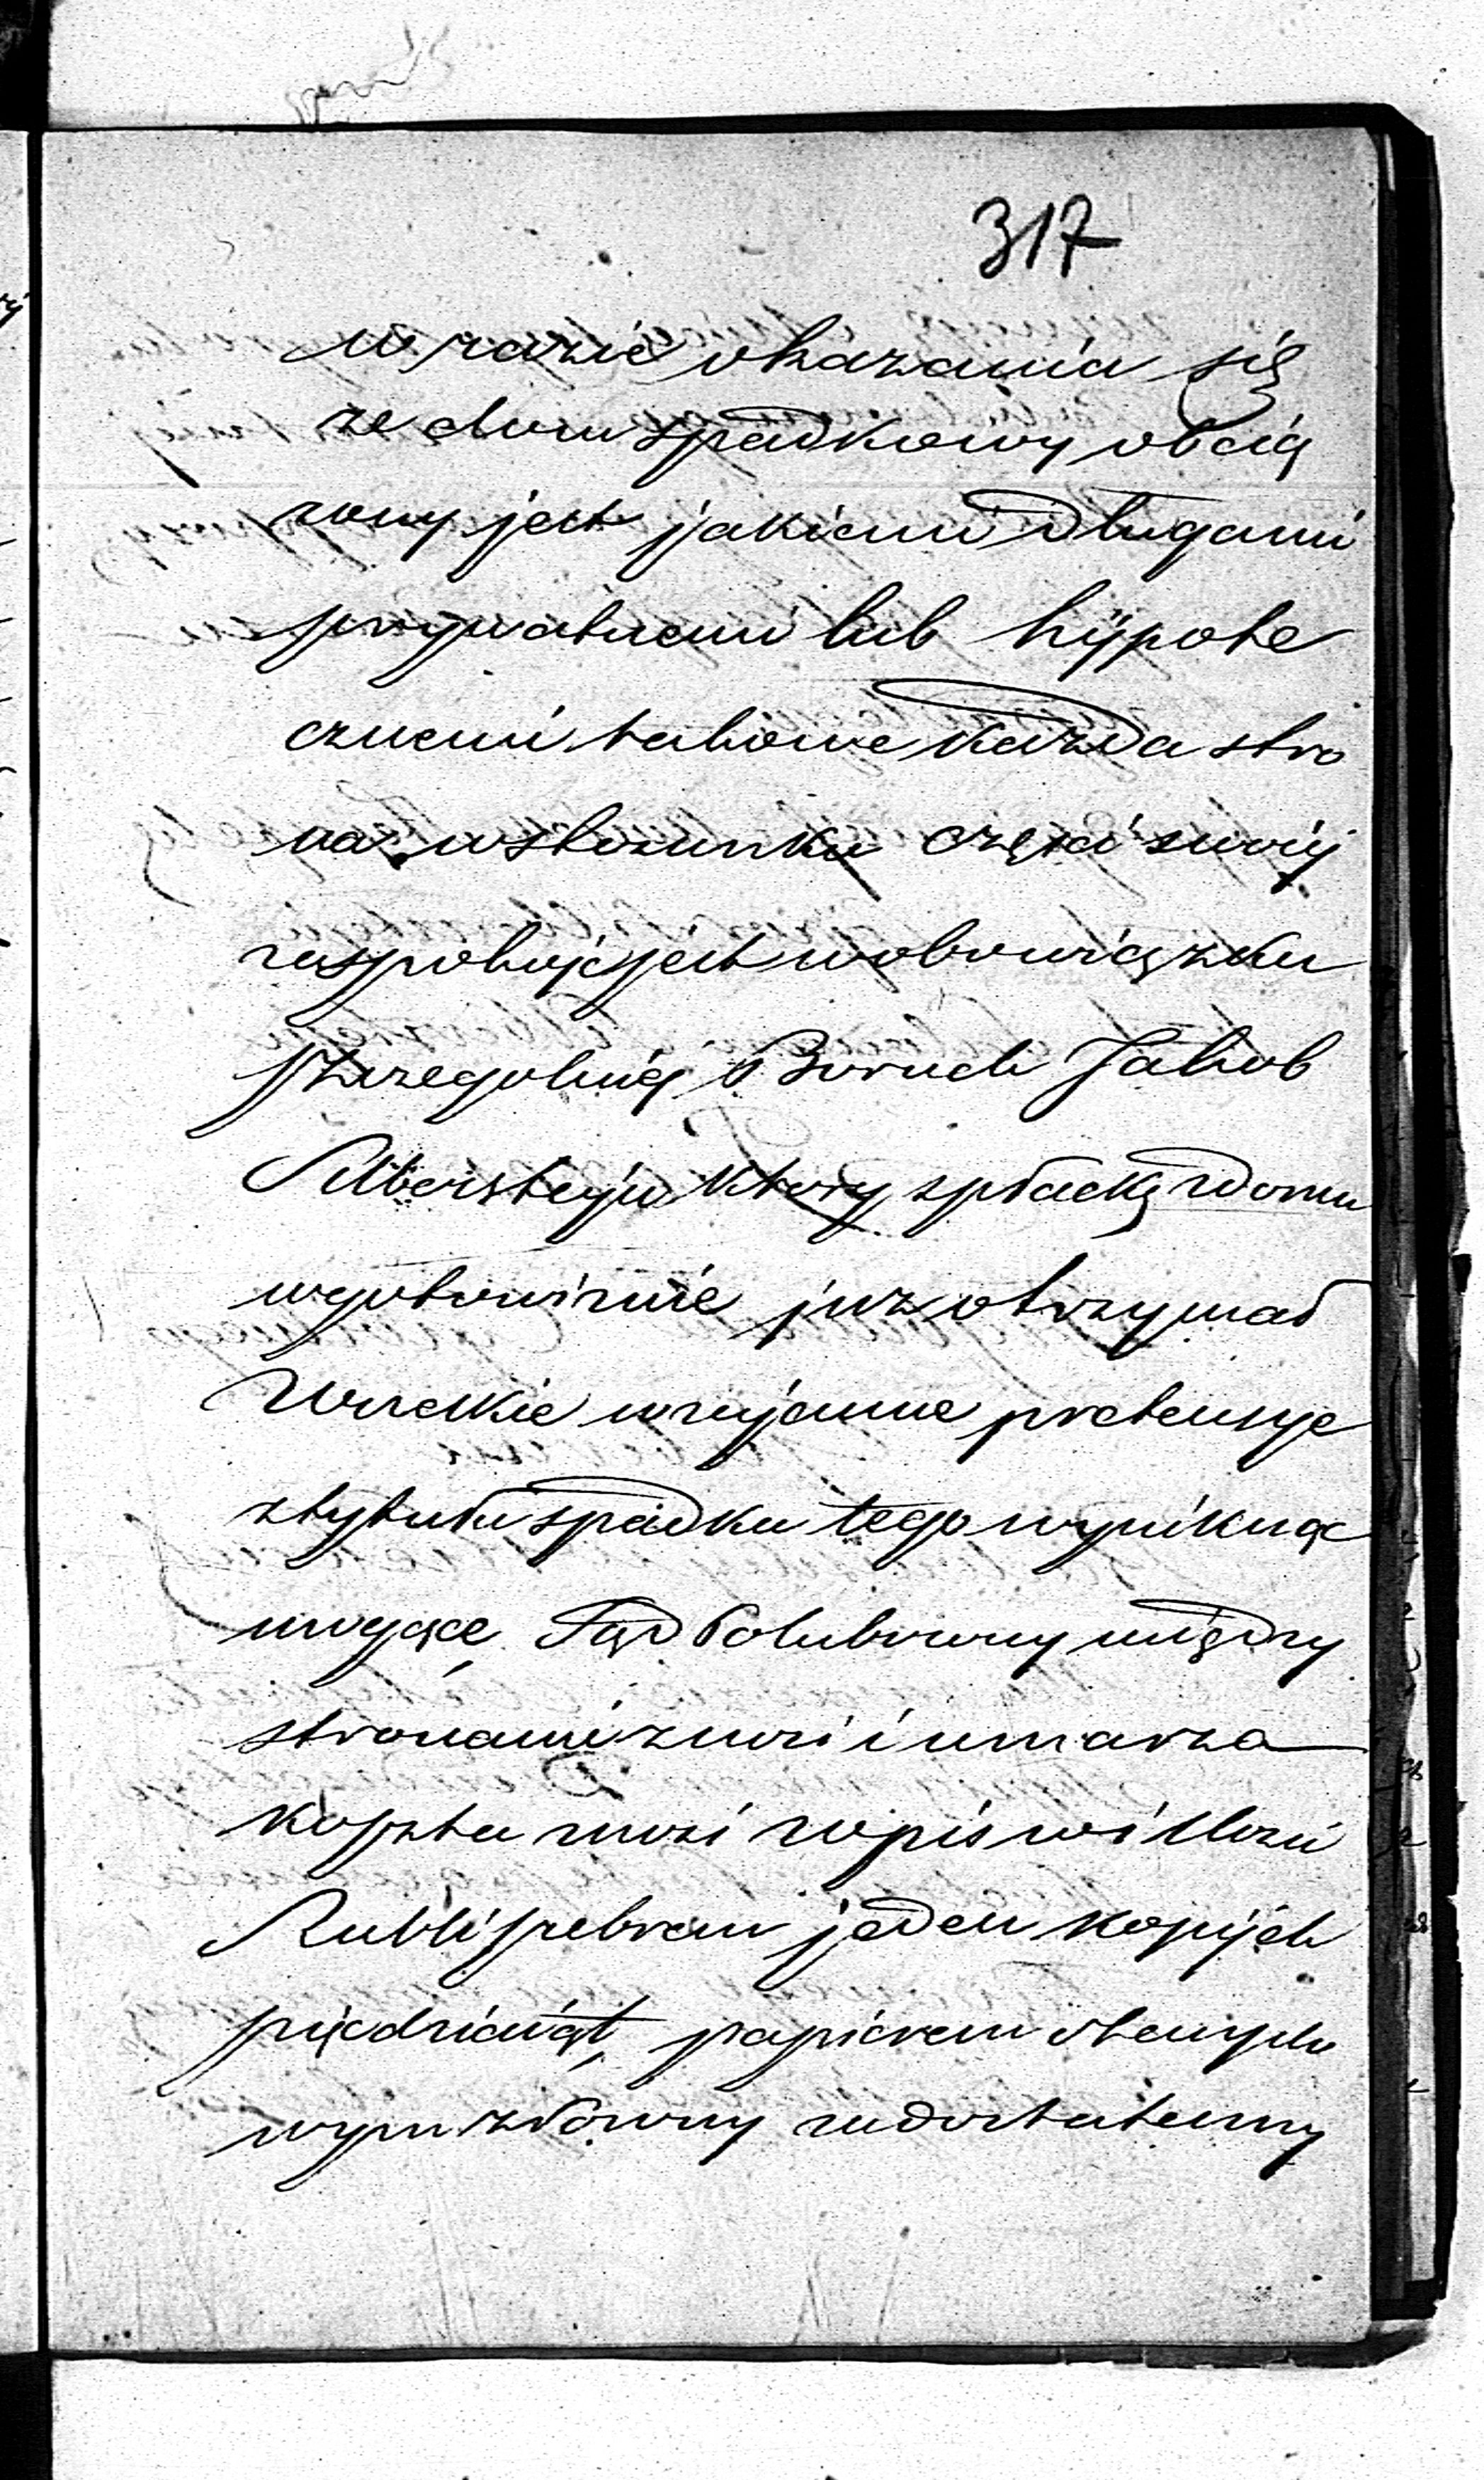 317
w razie okazania się
ze dom spadkowy obcią
zony jest jakiemi długami
prywatnemi lub hÿpote
cznemi takowe każda stro
na w stosunku części swéj
zaspokoić jest w obowiązku
szczegolniéj Boruch Jakob
Silbersteyn ktory spłatę z domu
w gotowiznie juz otrzymał
Wszelkie wzajemne pretensye
z tytułu spadku tego wyniknąć
mogące Sąd Polubowny między
stronami znosi i umarza
koszta znosi wpis w ilości
Rubli srebrem jeden kopijek
piędziesiąt, papierem stemplo
wym zdowny zadostatemy